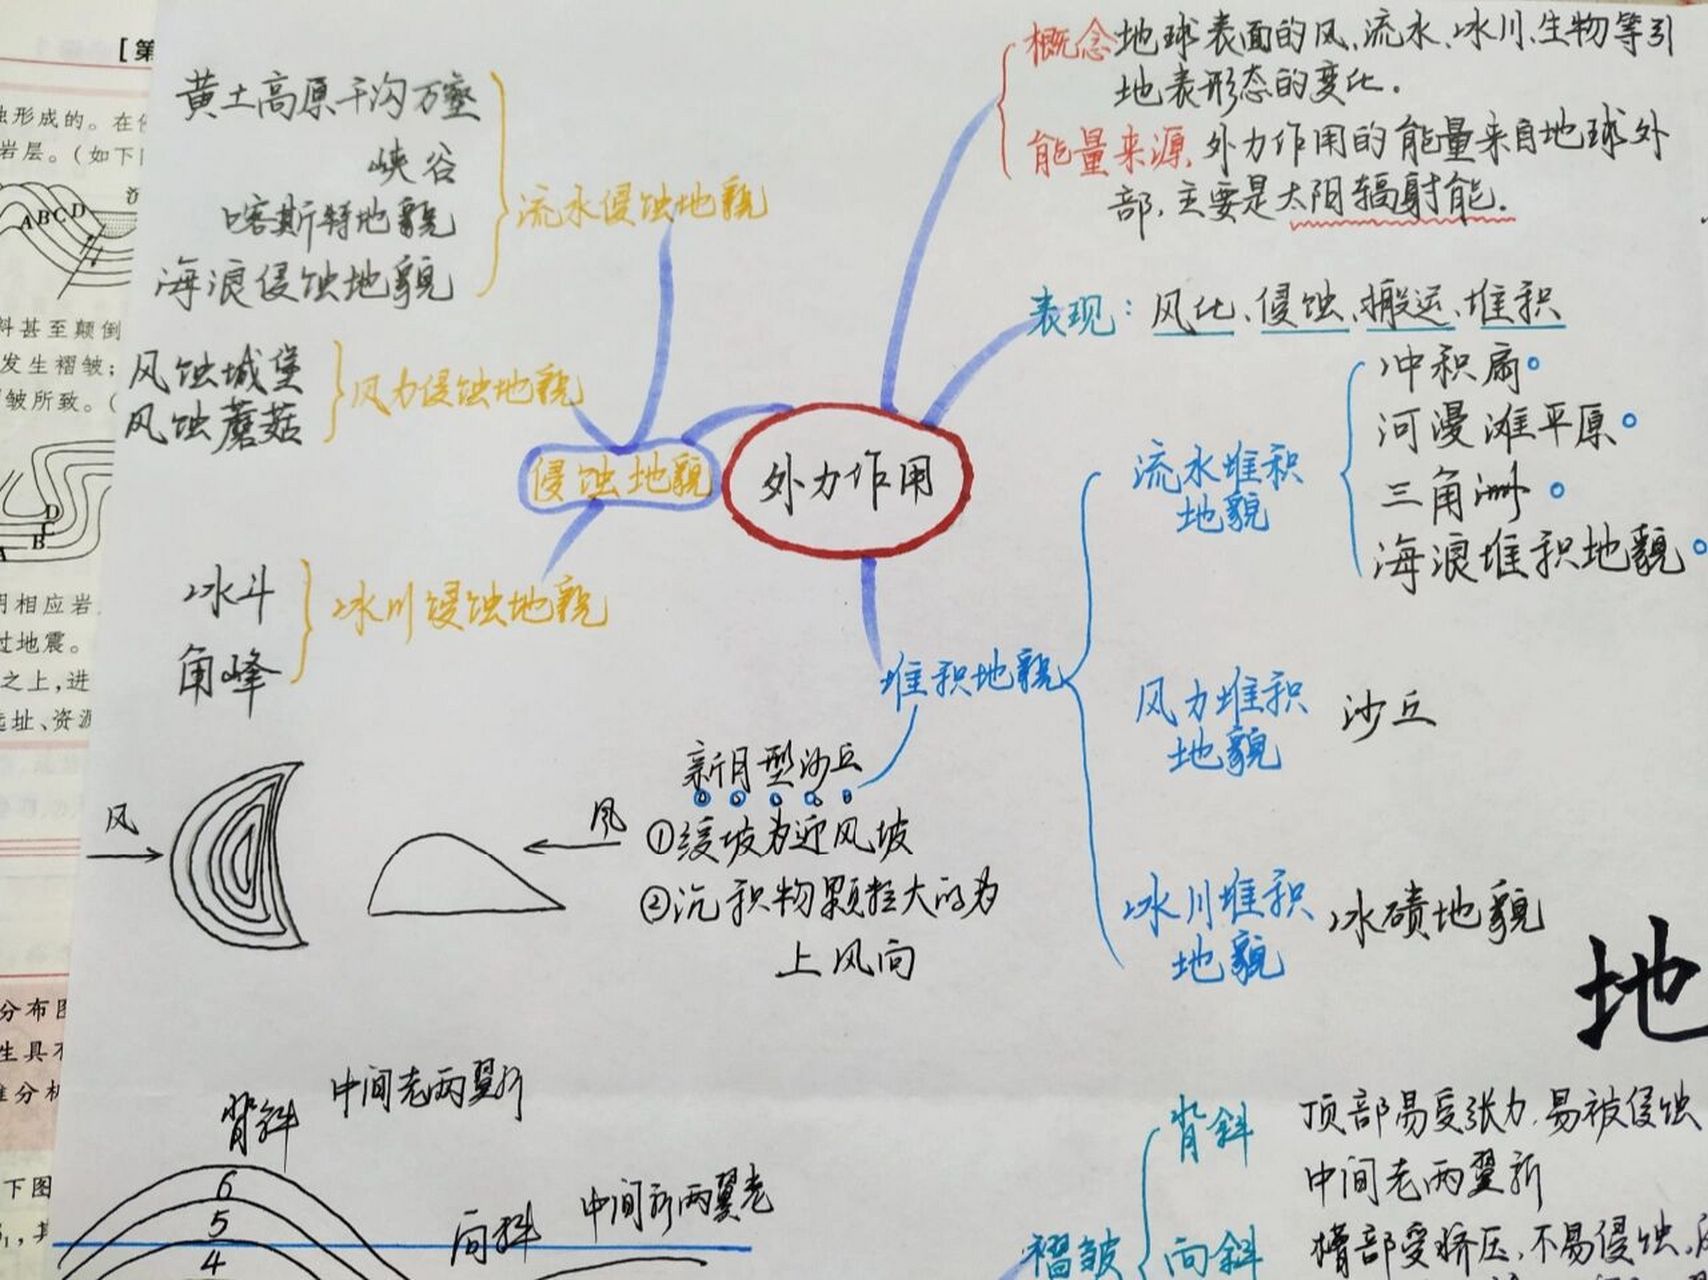 [第
黄土高原千沟万壑
峡谷
喀斯特地貌
海浪侵蚀地貌
流水侵蚀地貌
风蚀城堡
风蚀蘑菇
风力侵蚀地貌
侵蚀地貌
冰斗
角峰
冰川侵蚀地貌
外力作用
概念 地球表面的风、流水、冰川、生物等引
地表形态的变化.
能量来源, 外力作用的能量来自地球外
部,主要是太阳辐射能.
表现: 风化、侵蚀、搬运、堆积
堆积地貌
流水堆积
地貌
冲积扇。
河漫滩平原。
三角洲。
海浪堆积地貌。
风力堆积
地貌
沙丘
冰川堆积
地貌
冰碛地貌
新月型沙丘
①缓坡为迎风坡
②沉积物颗粒大的为
上风向
风
风
地
背斜
中间老两翼新
6
5
4
向斜
中间新两翼老
褶皱
背斜
顶部易受张力,易被侵蚀
中间老两翼新
向斜
槽部受挤压,不易侵蚀,
形成的。在
岩层。(如下
A B C D
料甚至颠倒
发生褶皱;
皱所致。(
D
C
B
A
明相应岩
过地震。
之上,进
选址、资源
分布图
生具不
准分析
下图